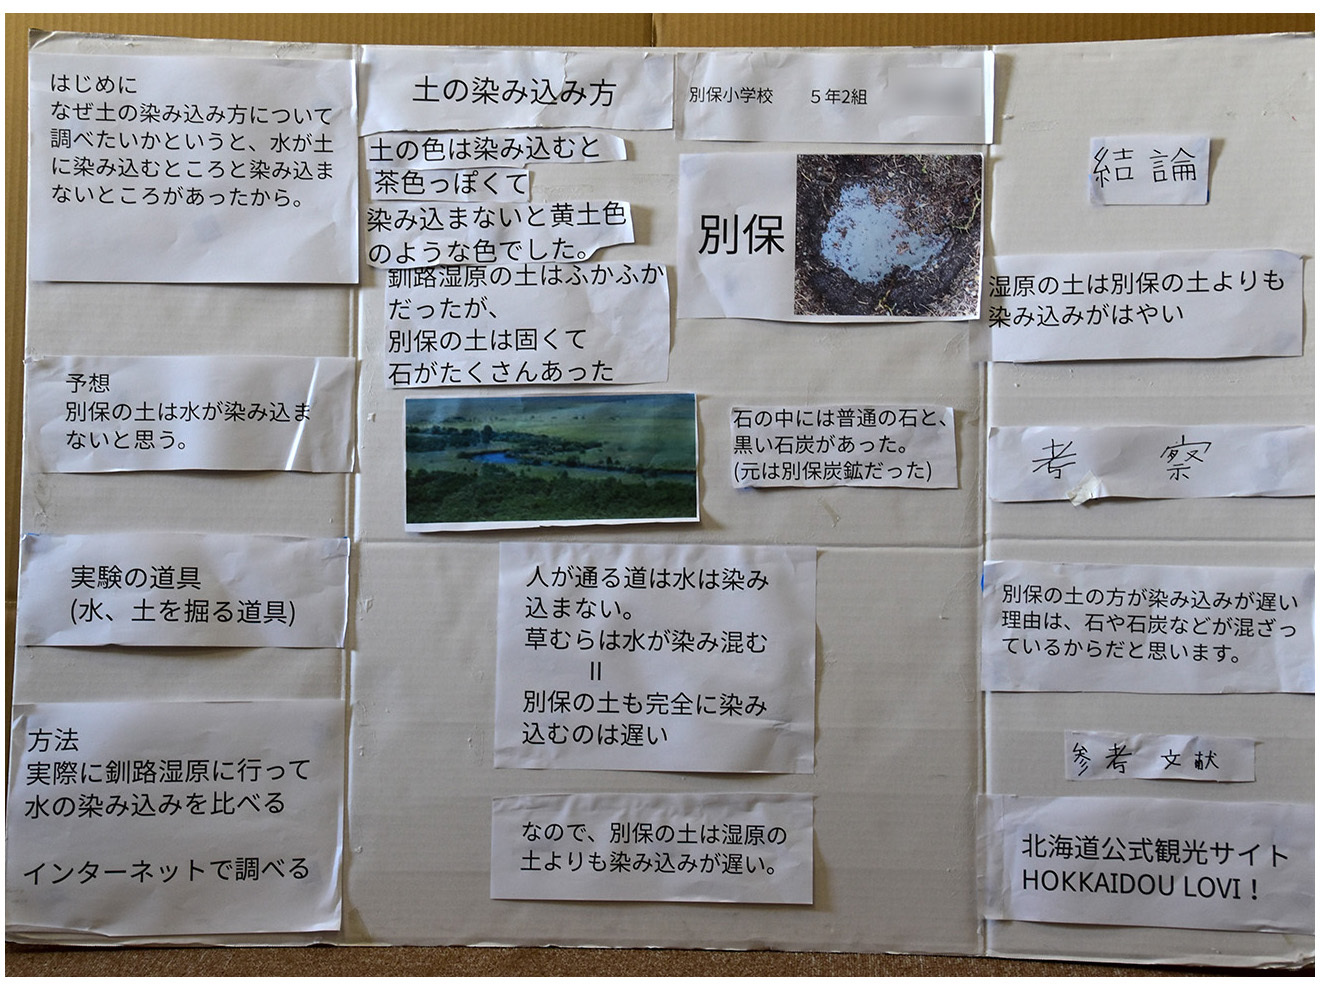 はじめに
なぜ土の染み込み方について
調べたいかというと、水が土
に染み込むところと染み込ま
ないところがあったから。
予想
別保の土は水が染み込ま
ないと思う。
実験の道具
(水、土を掘る道具)
方法
実際に釧路湿原に行って
水の染み込みを比べる
インターネットで調べる
土の染み込み方
別保小学校 5年2組
土の色は染み込むと
茶色っぽくて
染み込まないと黄土色
のような色でした。
釧路湿原の土はふかふか
だったが、
別保の土は固くて
石がたくさんあった
別保
石の中には普通の石と、
黒い石炭があった。
(元は別保炭鉱だった)
人が通る道は水は染み
込まない。
草むらは水が染み混む
=
別保の土も完全に染み
込むのは遅い
なので、別保の土は湿原の
土よりも染み込みが遅い。
結論
湿原の土は別保の土よりも
染み込みがはやい
考察
別保の土の方が染み込みが遅い
理由は、石や石炭などが混ざっ
ているからだと思います。
参考文献
北海道公式観光サイト
HOKKAIDOU LOVI！